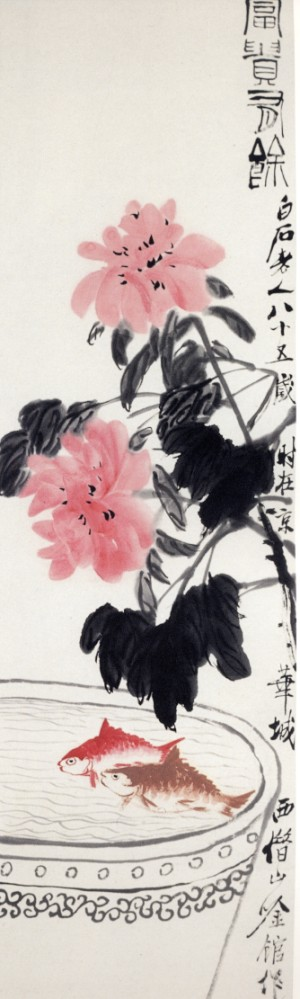 富貴有餘
白石老人八十五歲時在京華城西借山唫館作